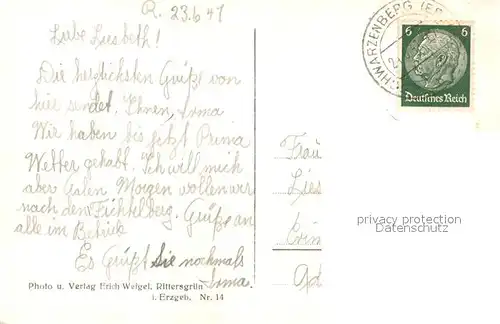 R. 23.6 41
Liebe Liesbeth!
Die herzlichsten Grüße von
hier sendet Ihnen, Irma
Wir haben bis jetzt Prima
Wetter gehabt. Ich will mich
aber Morgen wollen wir
nach dem Fichtelberg. Grüße an
alle im Betrieb
Es Grüßt Sie nochmals
Irma.
Photo u. Verlag Erich Weigel, Rittersgrün
i. Erzgeb. Nr. 14
SCHWARZENBERG (ER
6 6
Deutsches Reich
Frau
Lies
Crim
privacy protection